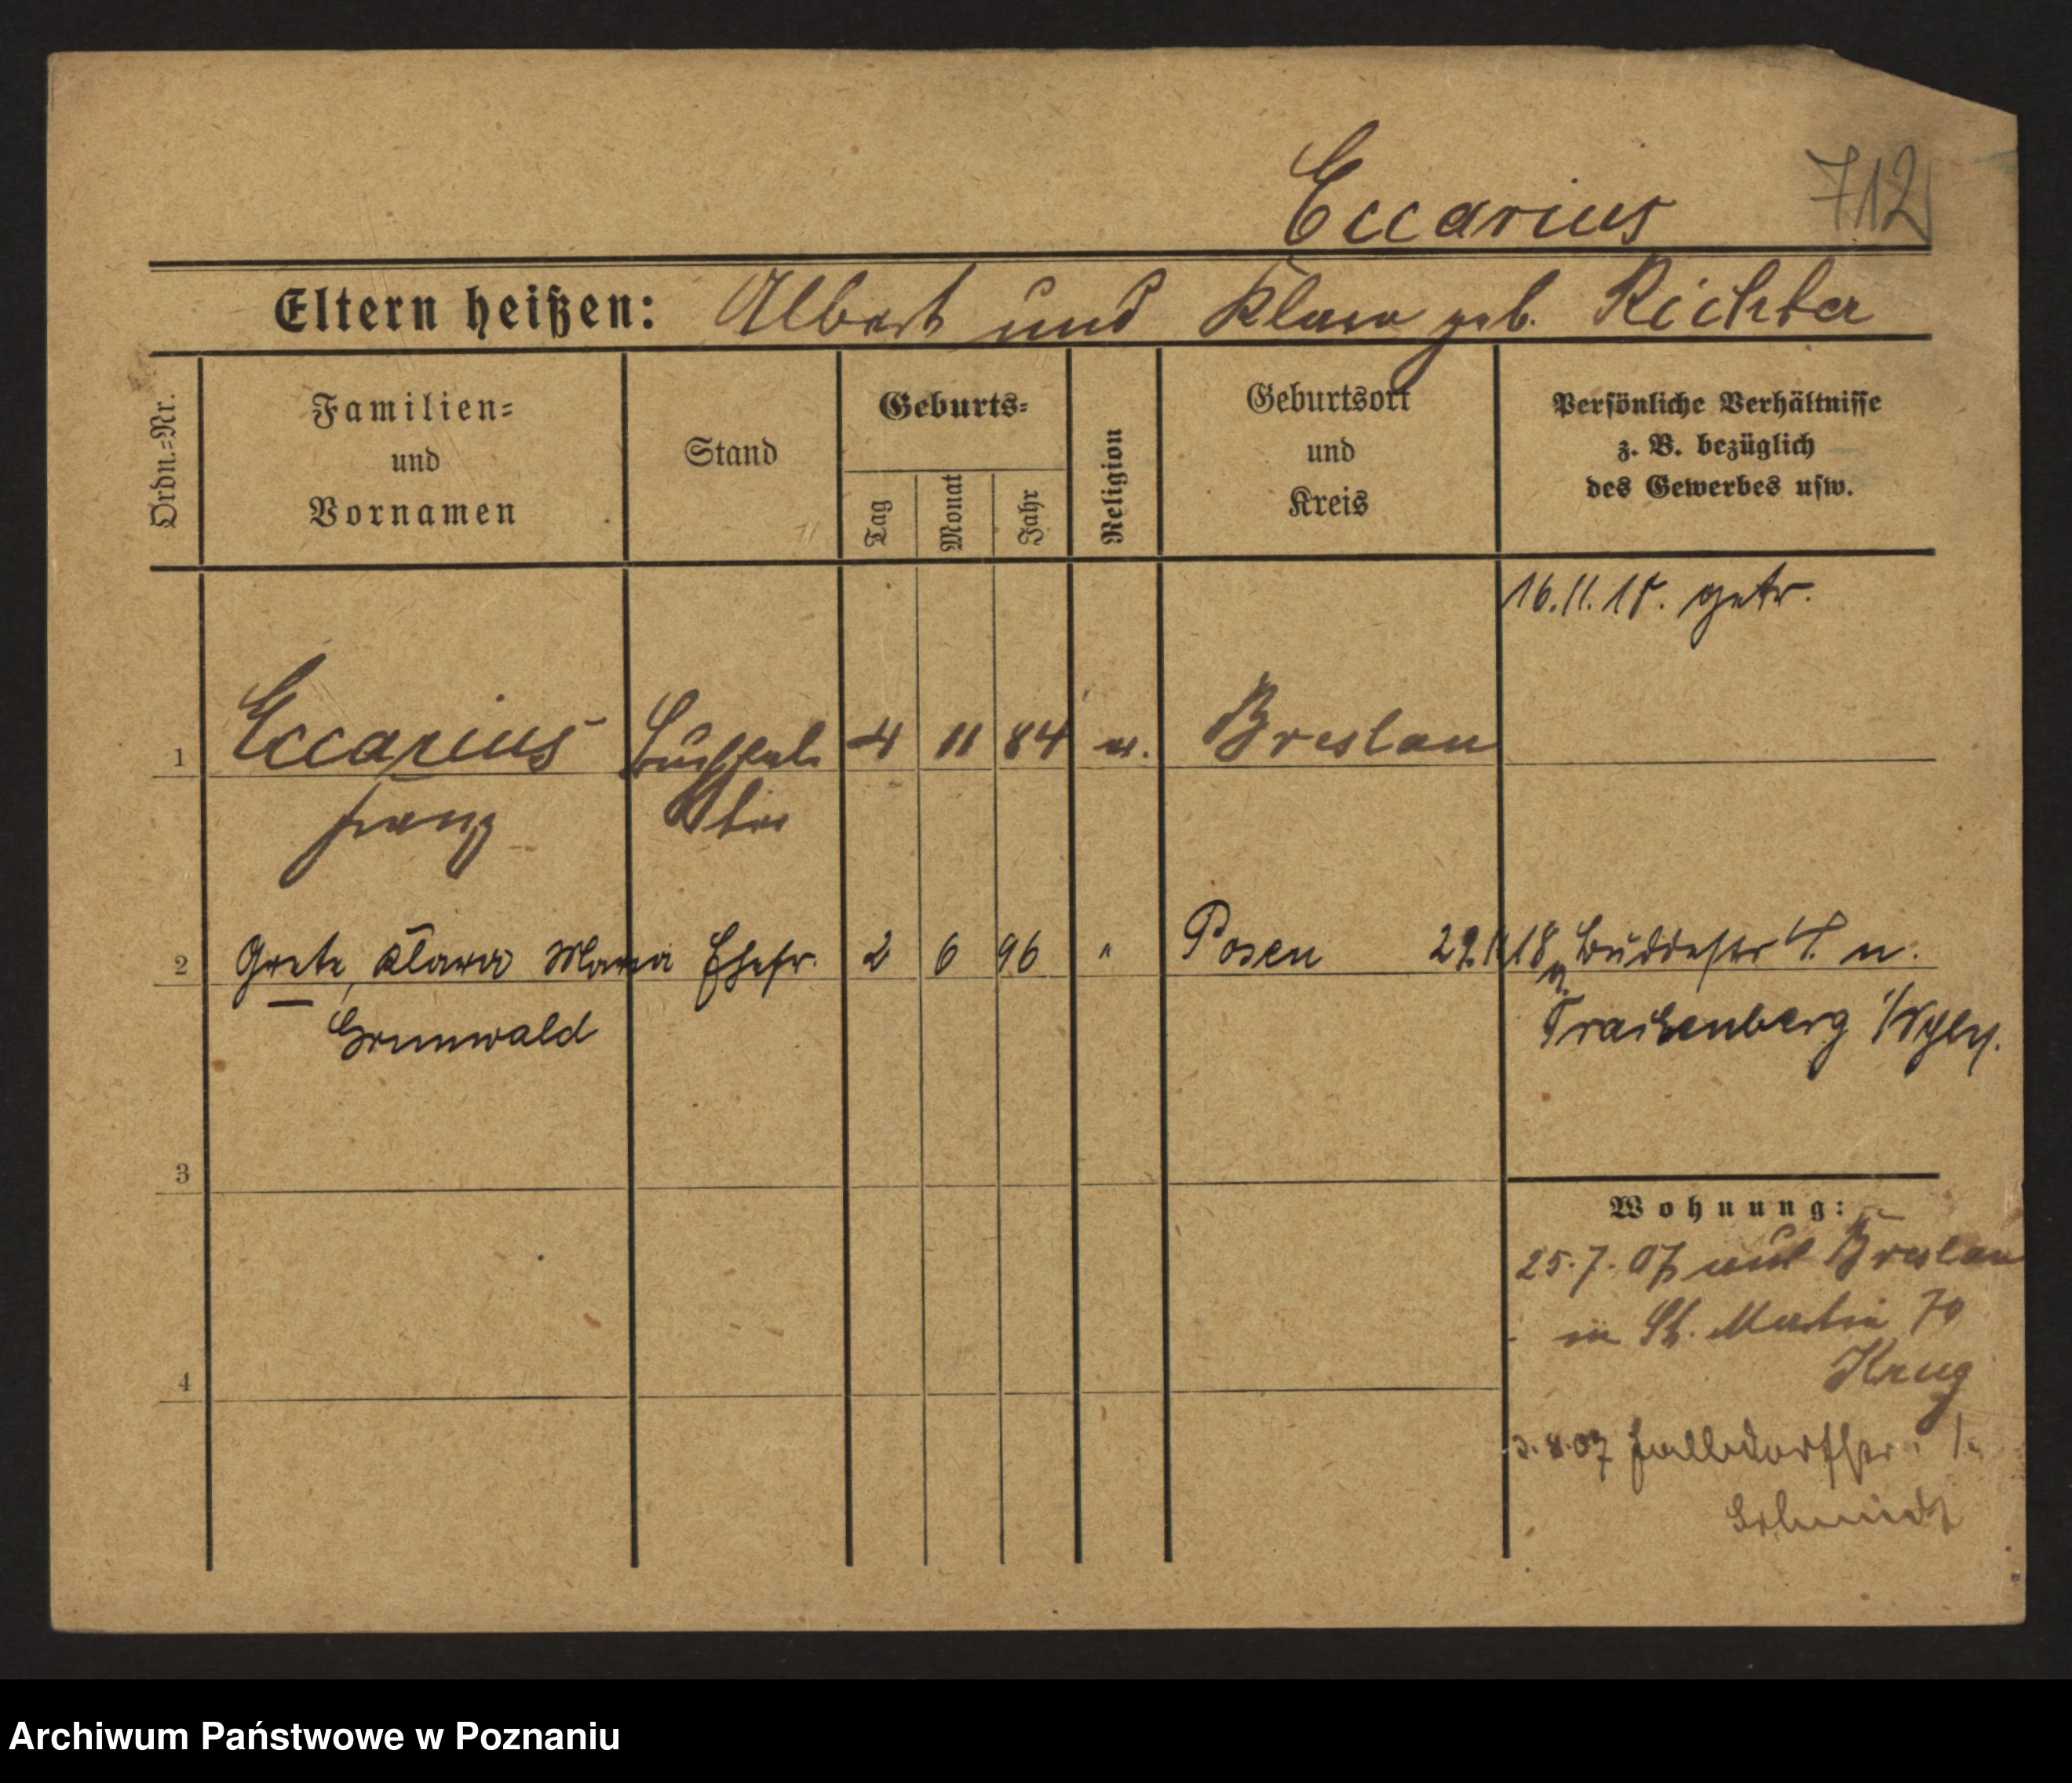 Eccarius 712
Eltern heißen: Albert und Klara geb. Richter
Ordn.=Nr.
Familien=
und
Vornamen
Stand
Geburts=
Tag
Monat
Jahr
Religion
Geburtsort
und
Kreis
Persönliche Verhältnisse
z. B. bezüglich
des Gewerbes usw.
16.11.18. getr.
1 Eccarius 4 11 84 Breslau
Franz
2 Grete, Klara Maria Ehefr. 2 6 96 " Posen 18 Buddestr n.
Grunwald
Trachenberg
3
Wohnung:
25.7.07 aus Breslau
in St. Martin 70
Krug
4
3.8.07
Schmidt
Archiwum Państwowe w Poznaniu